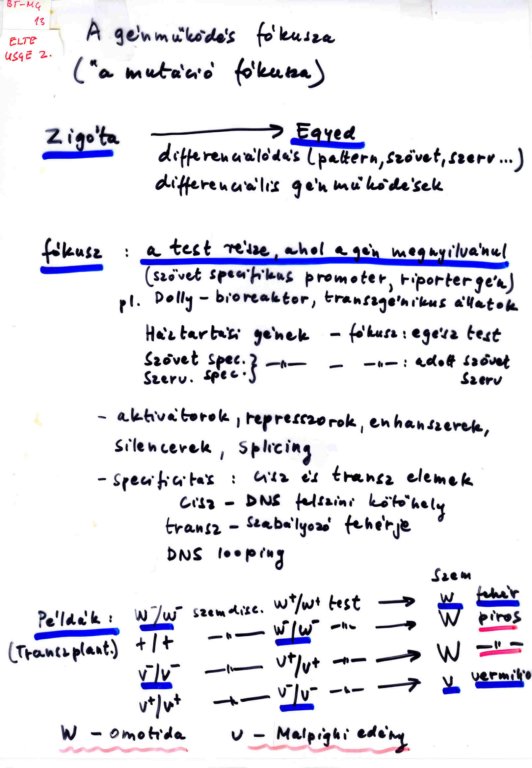 BT-MG
13
ELTE
USGE 2.
A génműködés fókusza
("a mutáció fókusza)
Zigóta ⟶ Egyed
differenciálódás (pattern, szövet, szerv ...)
differenciális génműködések
fókusz : a test része, ahol a gén megnyilvánul
(szövet specifikus promoter, riporter gén)
pl. Dolly - bioreaktor, transzgénikus állatok
Háztartási gének - fókusz: egész test
Szövet spec. } -"- - -"- : adott szövet
Szerv. spec. } szerv
- aktivátorok, represszorok, enhanszerek,
silencerek, splicing
- specificitás : cisz és transz elemek
cisz - DNS felszíni kötőhely
transz - szabályozó fehérje
DNS looping
Szem
Példák : w⁻/w⁻ szemdisc. w⁺/w⁺ test ⟶ w fehér
(Transzplant.) +/+ -"- w⁻/w⁻ -"- ⟶ W piros
v⁻/v⁻ -"- v⁺/v⁺ -"- ⟶ W -"-
v⁺/v⁺ -"- v⁻/v⁻ -"- ⟶ v vermilio
W - Omotida v - Malpighi edény